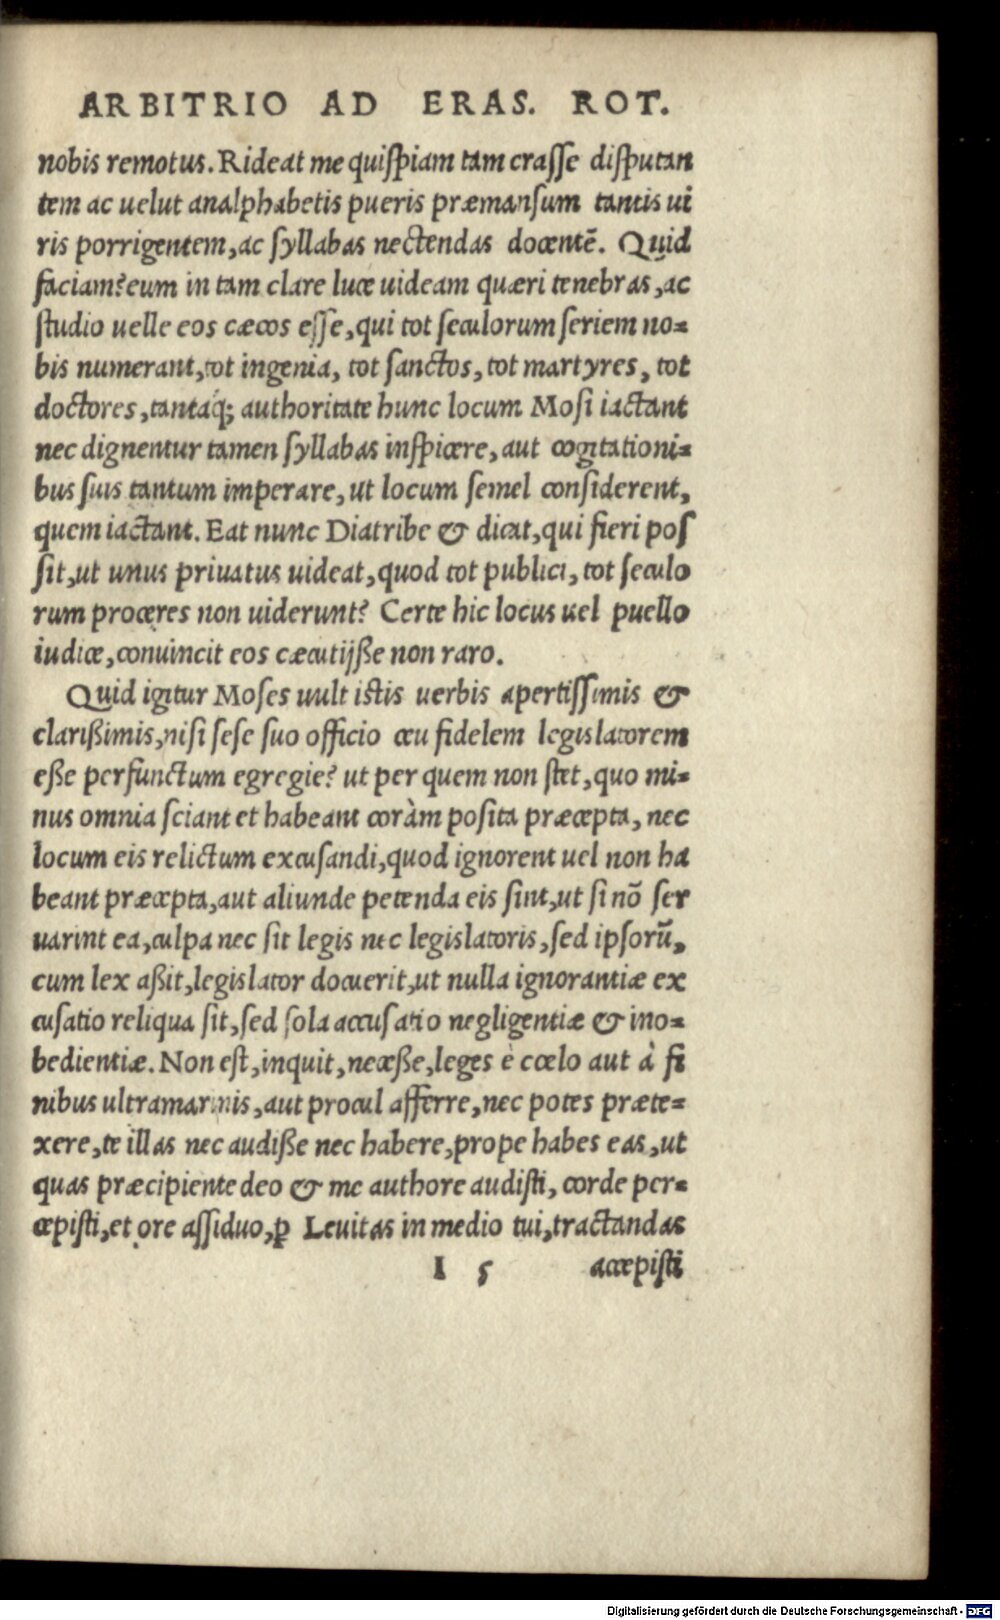 ARBITRIO AD ERAS. ROT.
nobis remotus. Rideat me quiſpiam tam craſſe diſputan
tem ac uelut analphabetis pueris præmanſum tantis ui
ris porrigentem, ac ſyllabas nectendas docentē. Quid
faciam? eum in tam clare luce uideam quæri tenebras, ac
ſtudio uelle eos cæcos eſſe, qui tot ſeculorum ſeriem no=
bis numerant, tot ingenia, tot ſanctos, tot martyres, tot
doctores, tantaq́; authoritate hunc locum Moſi iactant
nec dignentur tamen ſyllabas inſpicere, aut cogitationi=
bus ſuis tantum imperare, ut locum ſemel conſiderent,
quem iactant. Eat nunc Diatribe & dicat, qui fieri poſ
ſit, ut unus priuatus uideat, quod tot publici, tot ſeculo
rum proceres non uiderunt? Certe hic locus uel puello
iudice, conuincit eos cæcutijße non raro.
Quid igitur Moſes uult iſtis uerbis apertiſſimis &
clarißimis, niſi ſeſe ſuo officio ceu fidelem legislatorem
eße perfunctum egregie? ut per quem non ſtet, quo mi=
nus omnia ſciant et habeant coràm poſita præcepta, nec
locum eis relictum excuſandi, quod ignorent uel non ha
beant præcepta, aut aliunde petenda eis ſint, ut ſi nō ſer
uarint ea, culpa nec ſit legis nec legislatoris, ſed ipſorū,
cum lex aßit, legislator docuerit, ut nulla ignorantiæ ex
cuſatio reliqua ſit, ſed ſola accuſatio negligentiæ & ino=
bedientiæ. Non eſt, inquit, neceße, leges è cœlo aut à fi
nibus ultramarinis, aut procul afferre, nec potes præte=
xere, te illas nec audiße nec habere, prope habes eas, ut
quas præcipiente deo & me authore audiſti, corde per=
cepiſti, et ore aſſiduo, ꝑ Leuitas in medio tui, tractandas
I 5 accepiſti
Digitalisierung gefördert durch die Deutsche Forschungsgemeinschaft - DFG